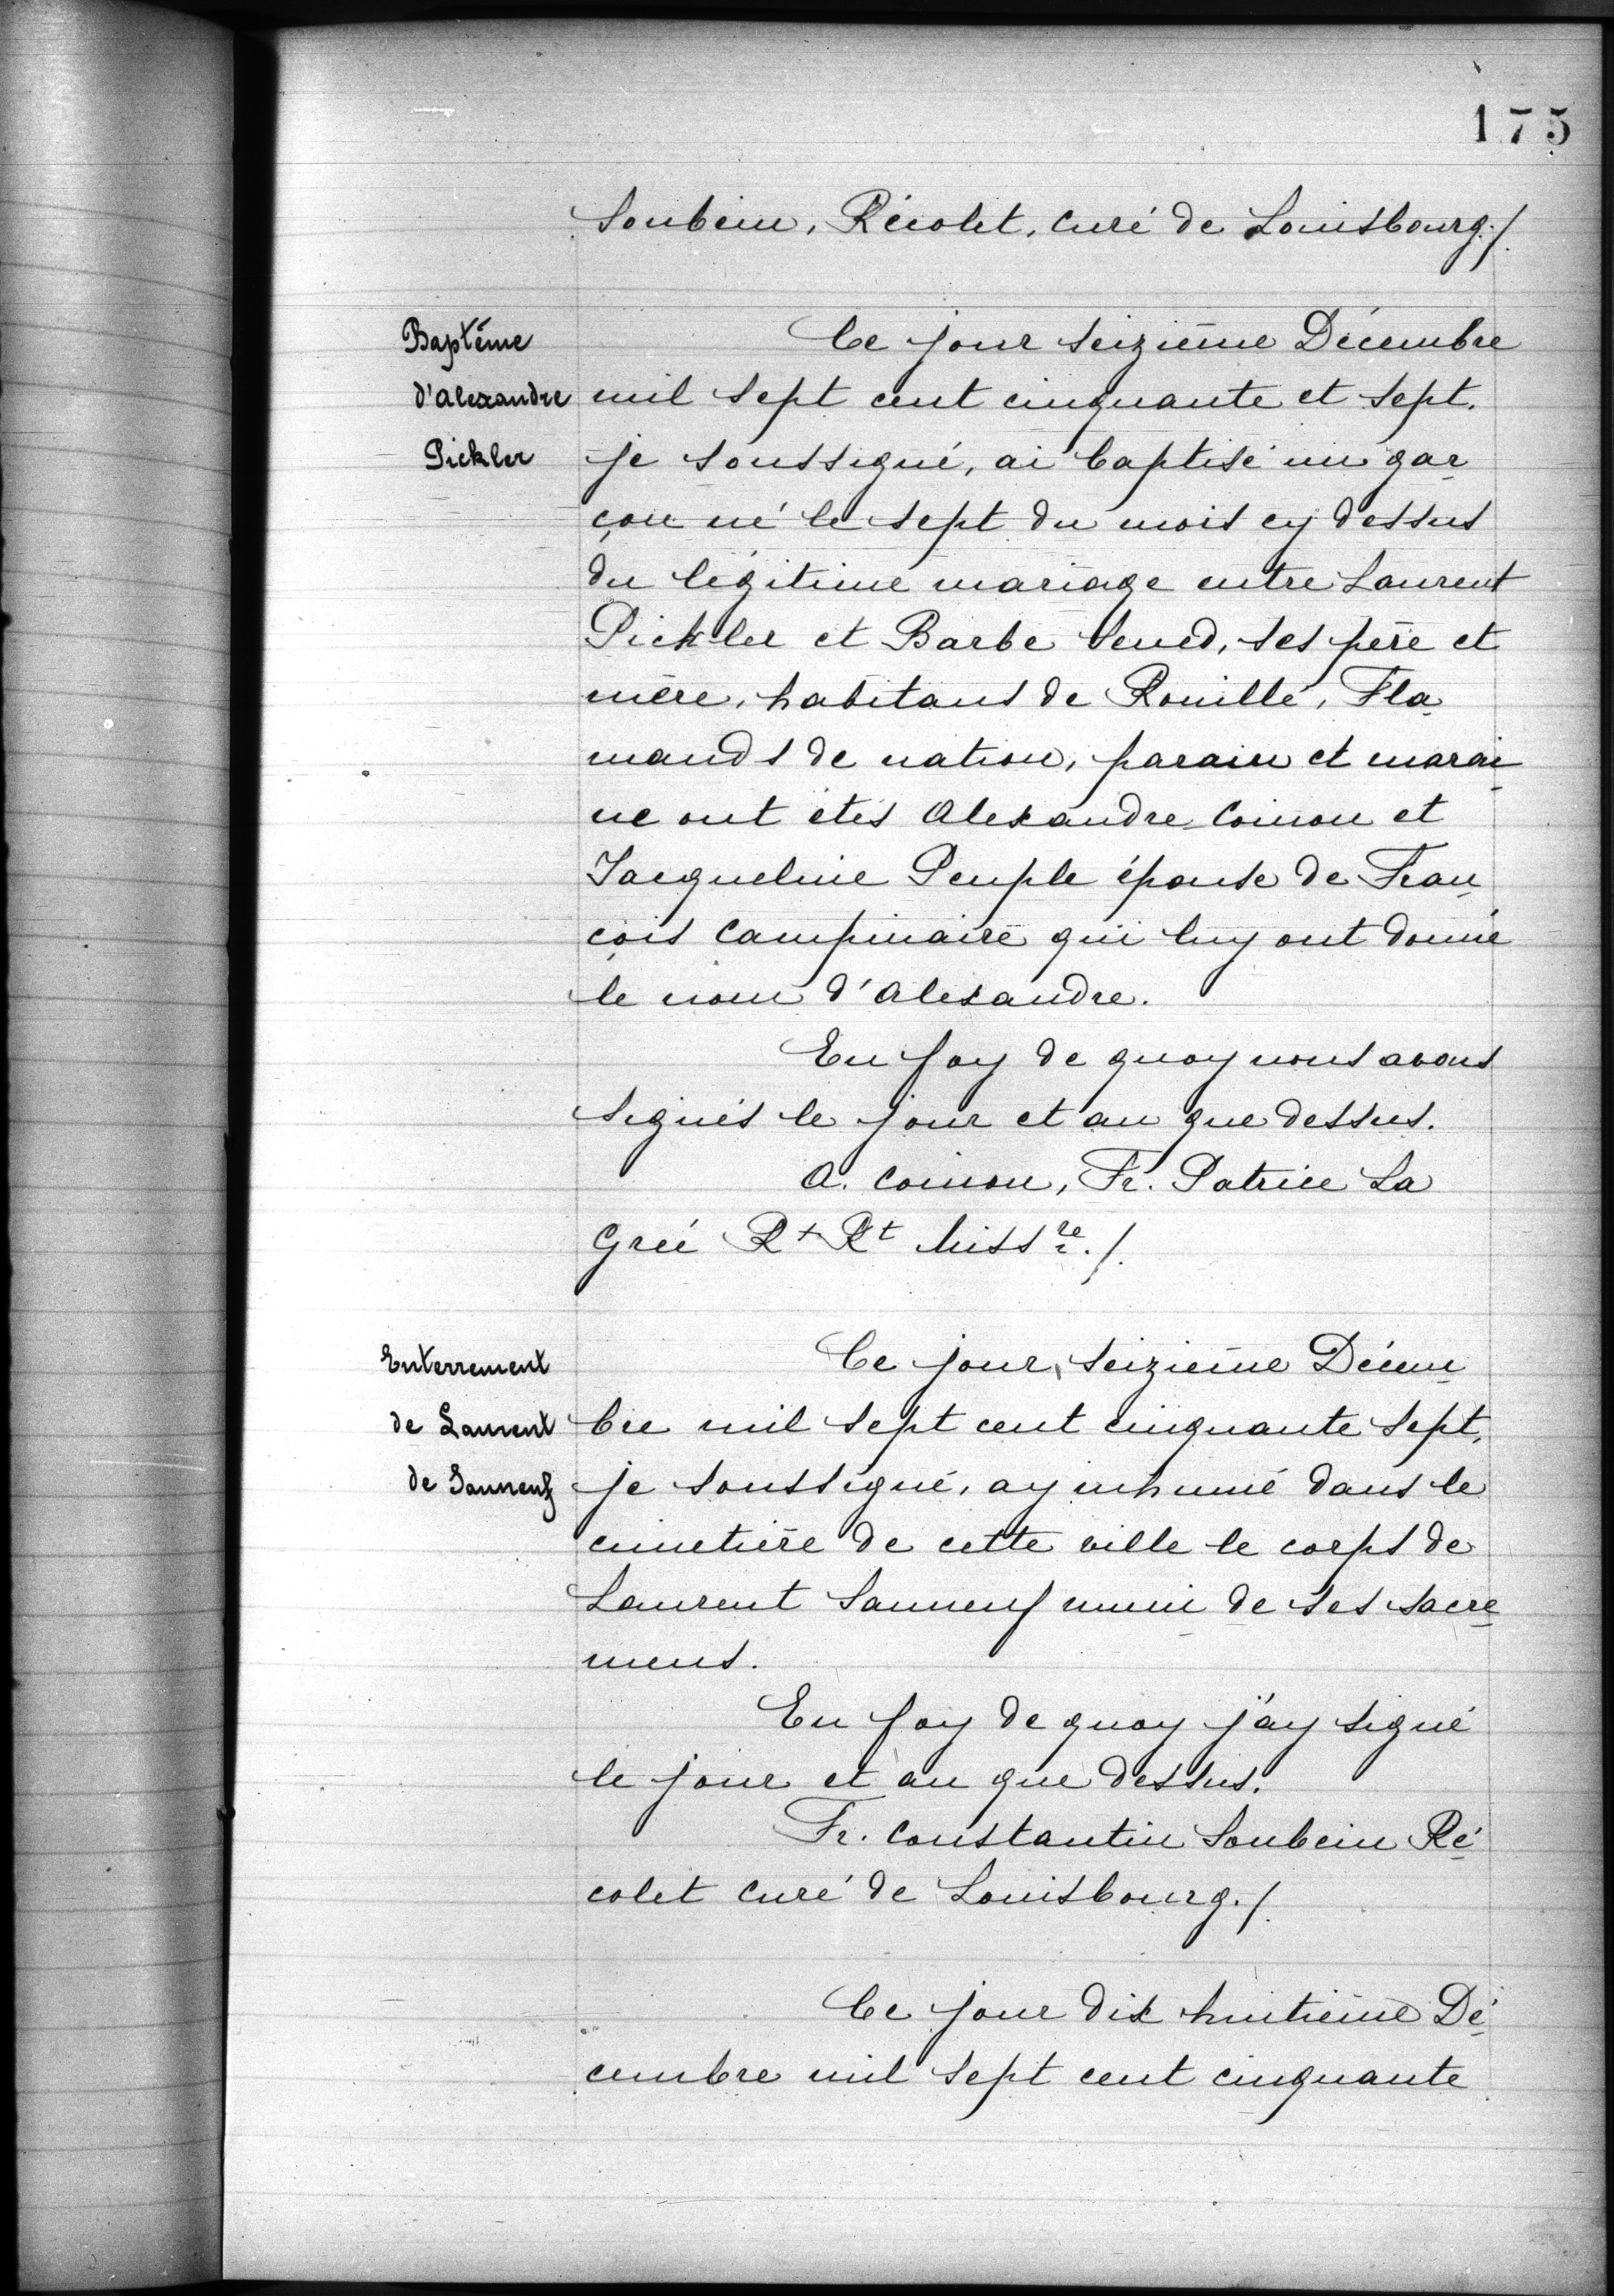 175
Soubein, Récolet, curé de Louisbourg./.
Baptême
d'Alexandre
Pickler
Ce jour seizième Décembre
mil sept cent cinquante et sept,
je soussigné, ai baptisé un gar
çon né le sept du mois cy dessus
du légitime mariage entre Laurent
Pickler et Barbe Sened, ses père et
mère, habitans de Rouillé, Fla
mands de nation, parain et marai
ne ont étés Alexandre Coinon et
Jacqueline Peuple épouse de Fran
çois Campinaire qui luy ont donné
le nom d'Alexandre.
En foy de quoy nous avons
signés le jour et an que dessus.
A. Coinon, Fr. Patrice La
Greé Rt Rt Missre./.
Enterrement
de Laurent
de
Ce jour, seizième Décem
bre mil sept cent cinquante sept,
je soussigné, ay inhumé dans le
cimetière de cette ville le corps de
Laurent muni de ses sacre
mens.
En foy de quoy j'ay signé
le jour et an que dessus.
Fr. Constantin Soubein Ré
colet curé de Louisbourg./.
Ce jour dix huitième Dé
cembre mil sept cent cinquante